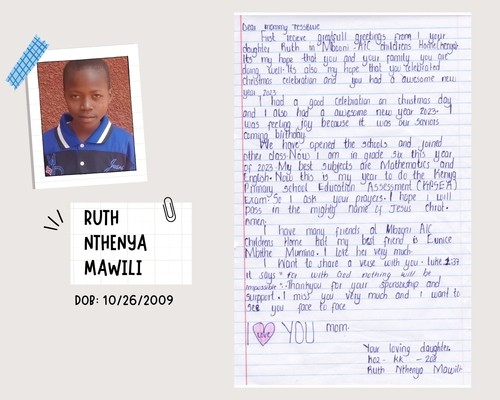 RUTH
NTHENYA
MAWILI
DOB: 10/26/2009
Dear mommy Tessblue
First receive greatfull greetings from I your
daughter Ruth in Mbooni AIC childrens Home
Its my hope that you and your family you are
doing well. Its also my hope that you celebrated
christmas celebration and you had a awesome new
year 2023
I had a good celebration on christmas day
and I also had a awesome new year 2023. I
was feeling joy because it was our saviors
coming birthday.
We have opened the schools and joined
other class. Now I am in grade six this year
of 2023. My best subjects are Mathematics and
English. Now this is my year to do the Kenya
Primary school Education Assessment (KPSEA)
Exam. So I ask your prayers. I hope I will
pass in the mighty name of Jesus christ.
Amen.
I have many friends at Mbooni AIC
Childrens Home but my best friend is Eunice
Mbithe Mumina. I love her very much.
I Want to share a verse with you. Luke 1:37
it says " For with God nothing will be
impossible". Thankyou for your sponsorship and
support. I miss you very much and I want to
see you face to face.
I love YOU mom.
Your loving daughter.
Ruth Nthenya Mawili